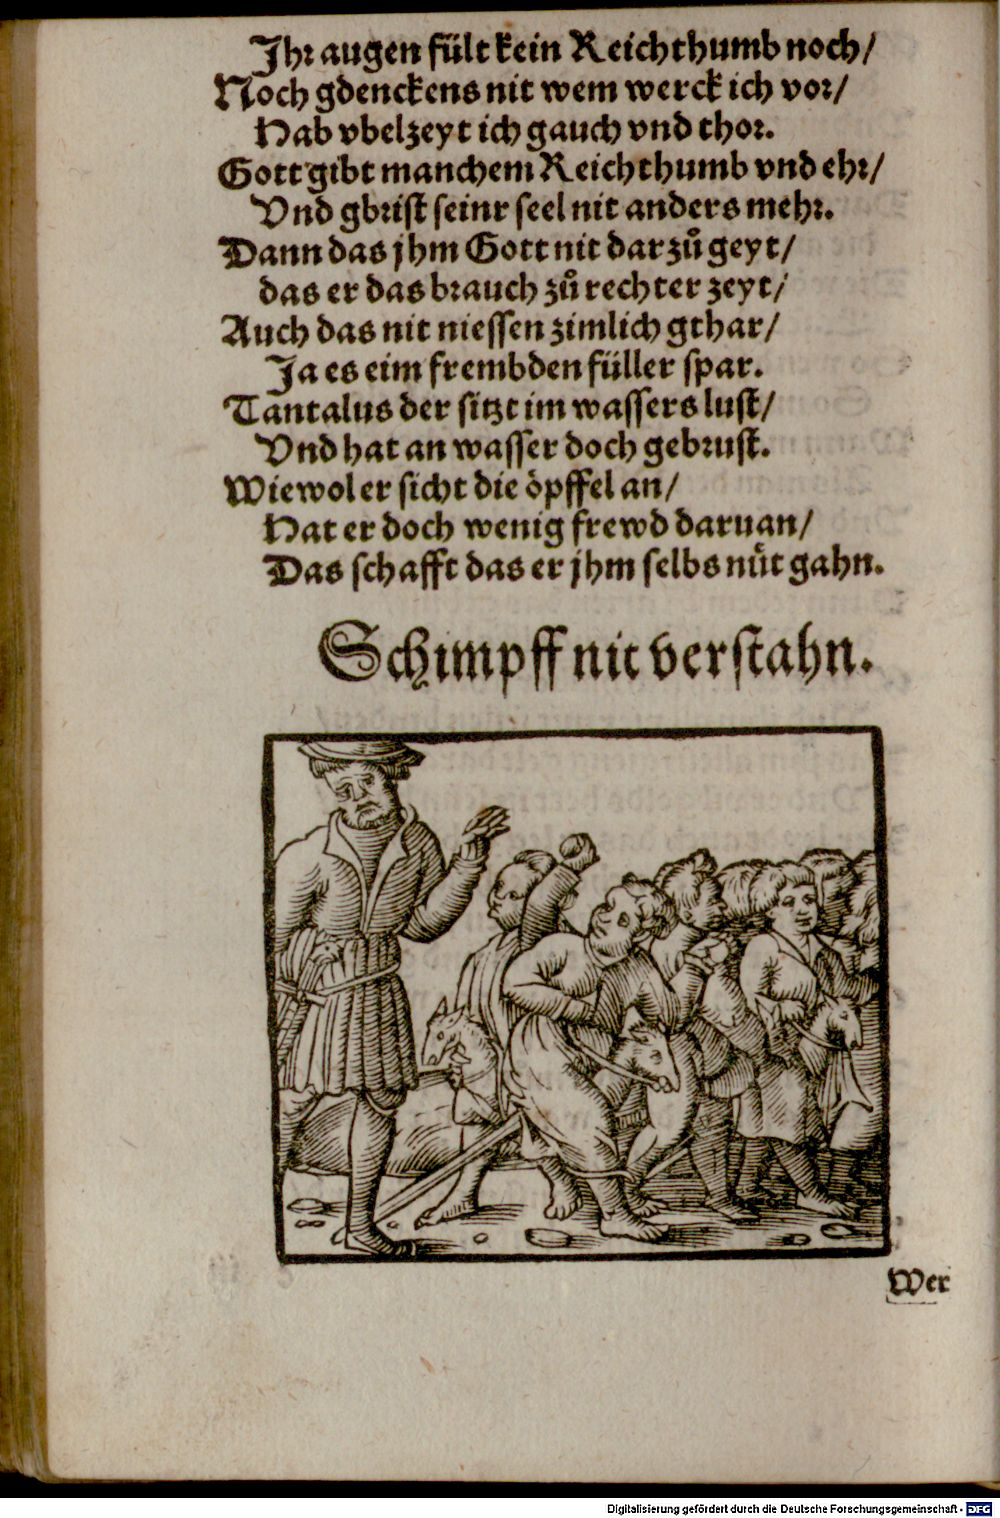 Ihr augen fült kein Reichthumb noch/
Noch gdenckens nit wem werck ich vor/
Hab vbelzeyt ich gauch vnd thor.
Gott gibt manchem Reichthumb vnd ehr/
Vnd gbrist seinr seel nit anders mehr.
Dann das jhm Gott nit darzů geyt/
das er das brauch zů rechter zeyt/
Auch das nit niessen zimlich gthar/
Ja es eim frembden füller spar.
Tantalus der sitzt im wassers lust/
Vnd hat an wasser doch gebrust.
Wiewol er sicht die öpffel an/
Hat er doch wenig frewd daruan/
Das schafft das er jhm selbs nüt gahn.
Schimpff nit verstahn.
Wer
Digitalisierung gefördert durch die Deutsche Forschungsgemeinschaft - DFG